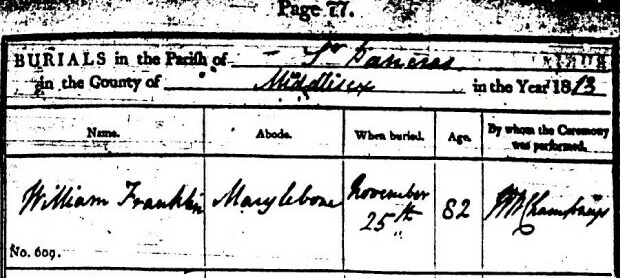 Page 77.
BURIALS in the Parish of St Pancras
in the County of Middlesex in the Year 1813
Name. Abode. When buried. Age. By whom the Ceremony was performed.
William Franklin Marylebone November 25th 82
No. 609.